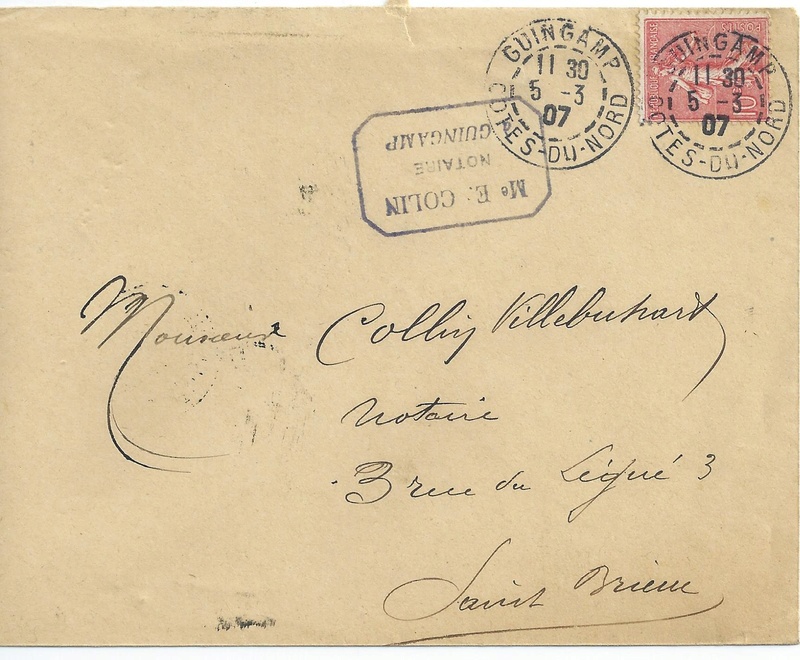 GUINGAMP
11 30
5 -3
07
COTES-DU-NORD
GUINGAMP
11 30
5 -3
07
COTES-DU-NORD
POSTES
RÉPUBLIQUE FRANÇAISE
10
Me E. COLIN
NOTAIRE
GUINGAMP
Monsieur Collin Villebuhart
notaire
3 rue du Légué 3
Saint Brieuc